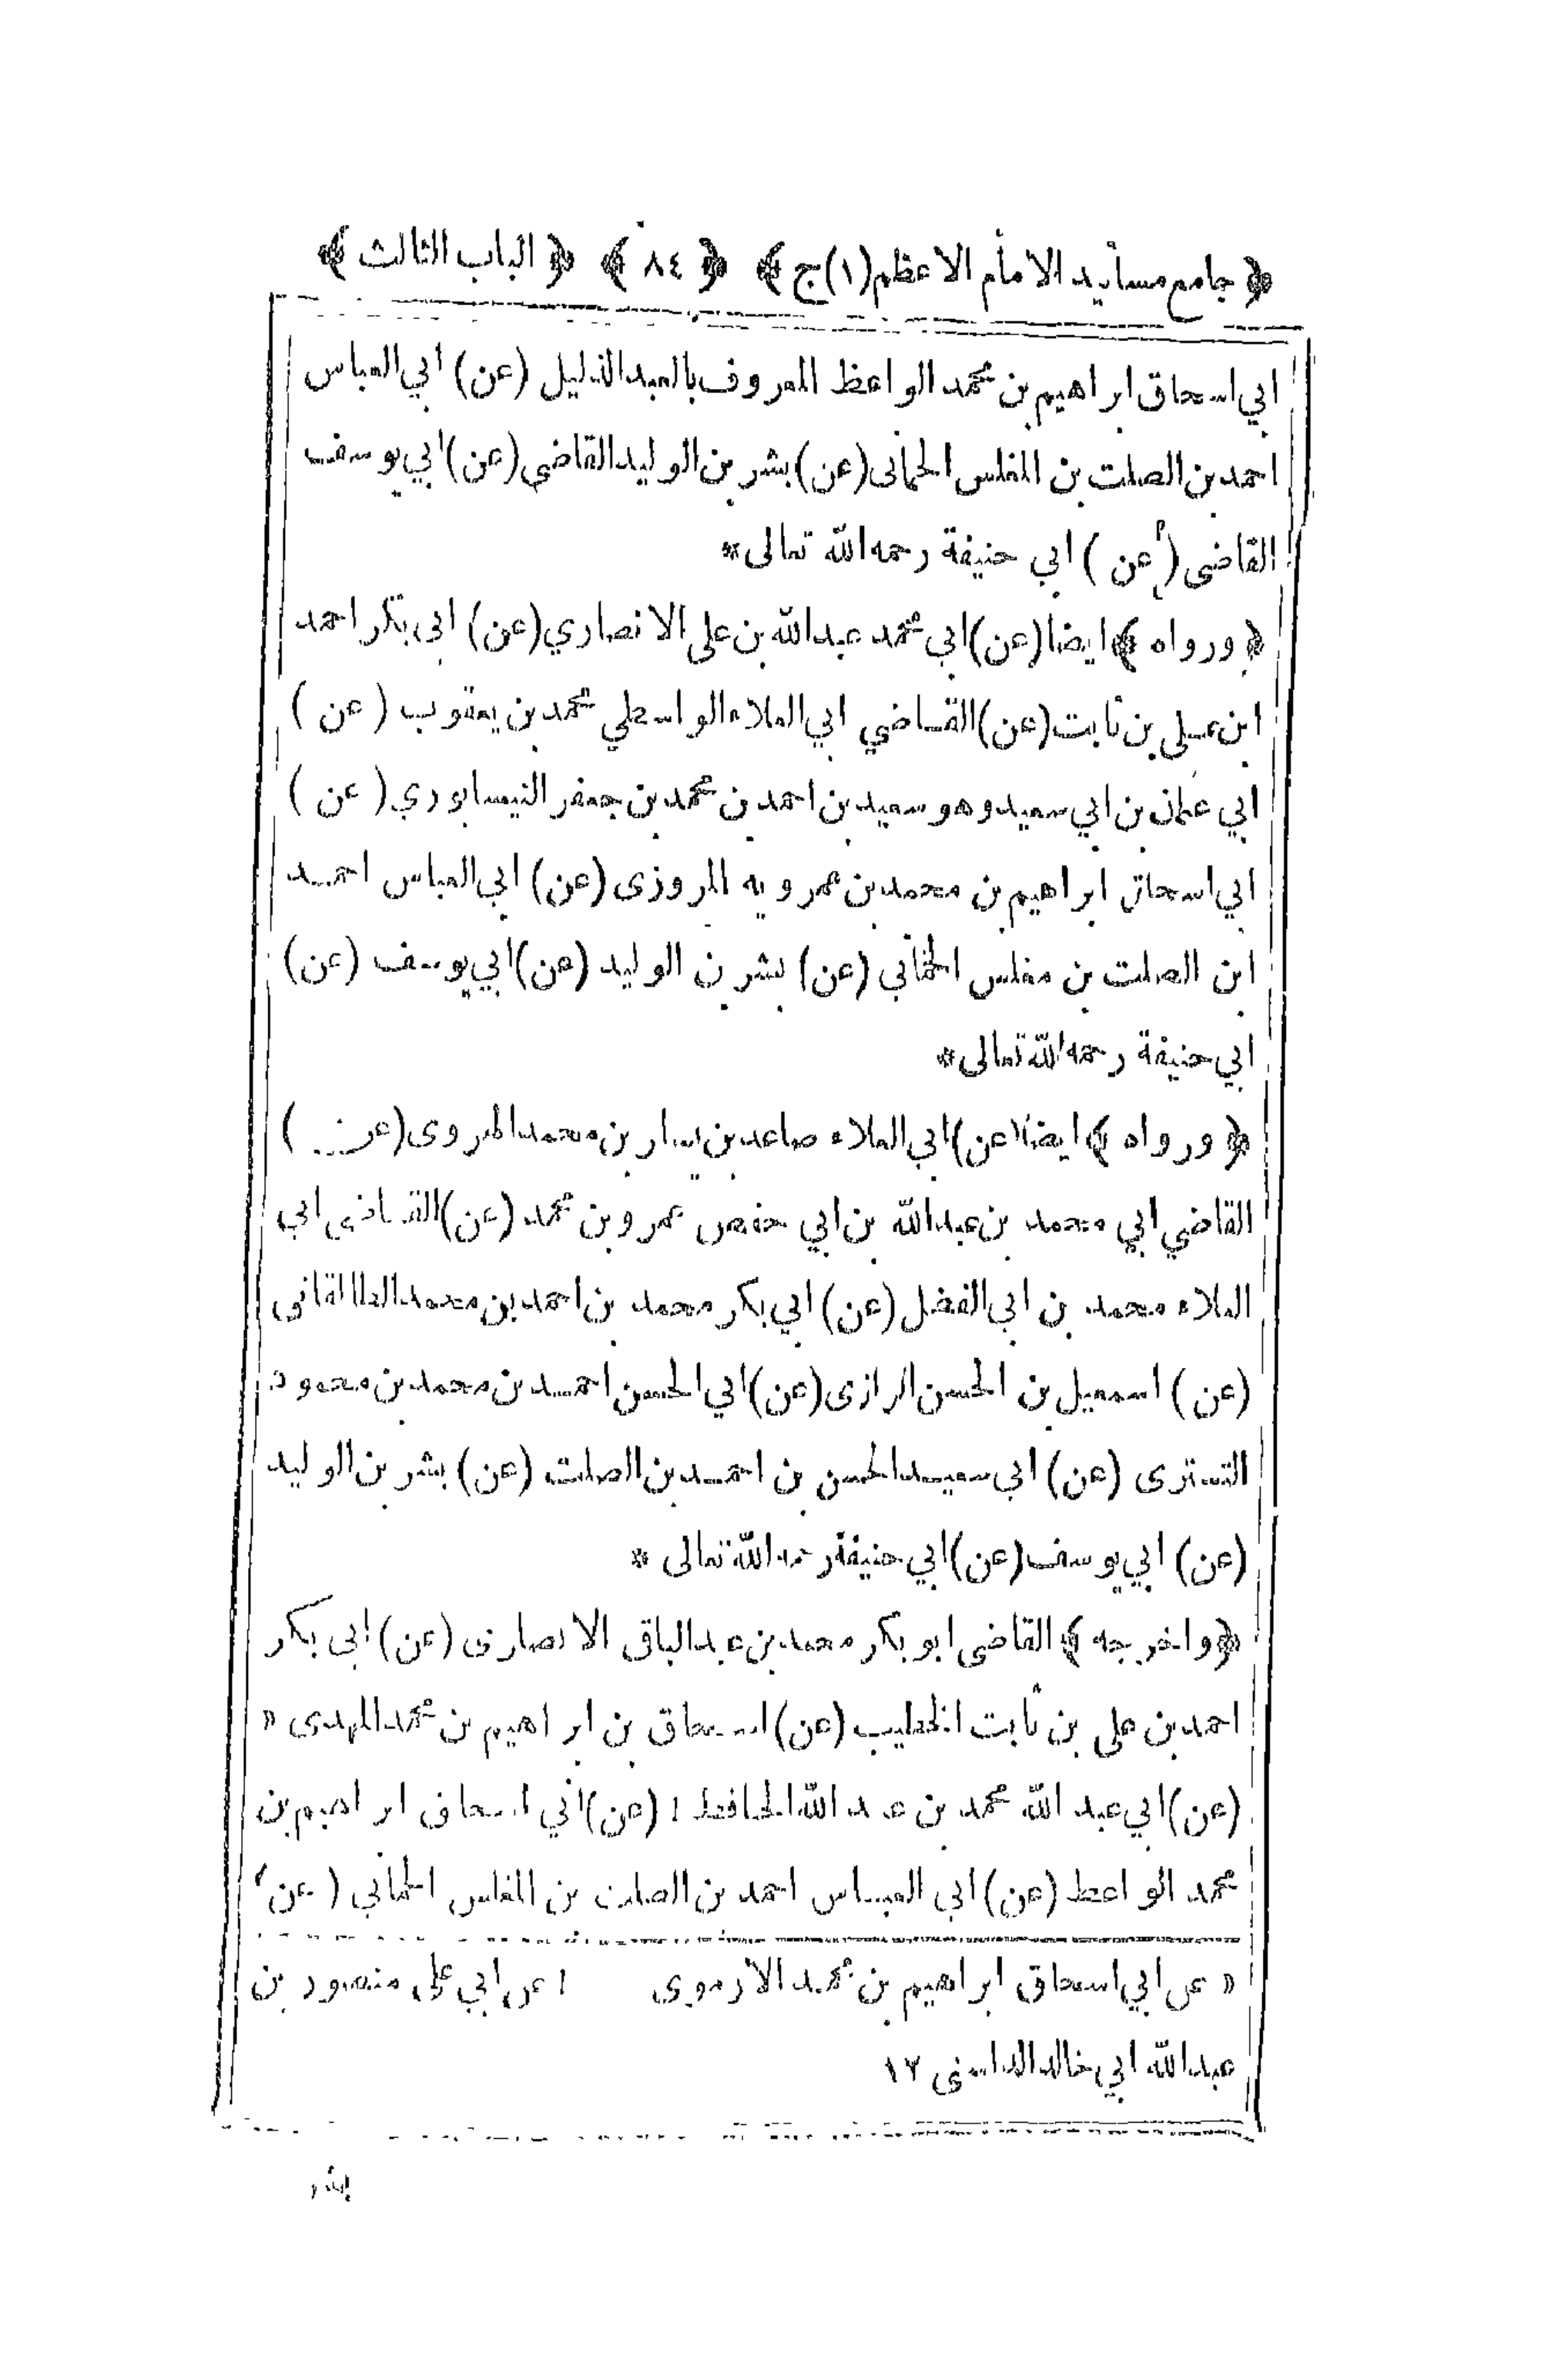 ﴿ جامع مسانيد الامام الاعظم (١) ج ﴾ ﴿ ٨٤ ﴾ ﴿ الباب الثالث ﴾
ابي اسحاق ابراهيم بن محمد الواعظ المعروف بالعبد الذليل (عن) ابي العباس
احمد بن الصلت بن المغلس الحمانى (عن) بشر بن الوليد القاضى (عن) ابي يوسف
القاضى (عن) ابي حنيفة رحمه الله تعالى *
﴿ ورواه ﴾ ايضا (عن) ابي محمد عبد الله بن على الانصاري (عن) ابى بكر احمد
ابن على بن ثابت (عن) القاضي ابي العلاء الواسطي محمد بن يعقوب (عن)
ابي عثمان بن ابي سعيد وهو سعيد بن احمد بن محمد بن جعفر النيسابوري (عن)
ابي اسحاق ابراهيم بن محمد بن عمرويه المروزى (عن) ابي العباس احمد
ابن الصلت بن مغلس الحماني (عن) بشر بن الوليد (عن) ابي يوسف (عن)
ابي حنيفة رحمه الله تعالى *
﴿ ورواه ﴾ ايضا (عن) ابي العلاء صاعد بن يسار بن محمد الهروى (عن)
القاضي ابي محمد بن عبد الله بن ابي حفص عمرو بن محمد (عن) القاضى ابي
العلاء محمد بن ابي الفضل (عن) ابي بكر محمد بن احمد بن محمد الطالقانى
(عن) اسمعيل بن الحسن الرازى (عن) ابي الحسن احمد بن محمد بن محمود
التسترى (عن) ابي سعيد الحسن بن احمد بن الصلت (عن) بشر بن الوليد
(عن) ابي يوسف (عن) ابي حنيفة رحمه الله تعالى *
﴿ واخرجه ﴾ القاضى ابو بكر محمد بن عبد الباقى الانصارى (عن) ابى بكر
احمد بن على بن ثابت الخطيب (عن) اسحاق بن ابراهيم بن محمد المهدى »
(عن) ابي عبد الله محمد بن عبد الله الحافظ ١ (عن) ابي اسحاق ابراهيم بن
محمد الواعظ (عن) ابي العباس احمد بن الصلت بن المغلس الحماني (عن)
» عن ابي اسحاق ابراهيم بن محمد الارموى ١ عن ابي على منصور بن
عبد الله ابي خالد ١٢
بشر